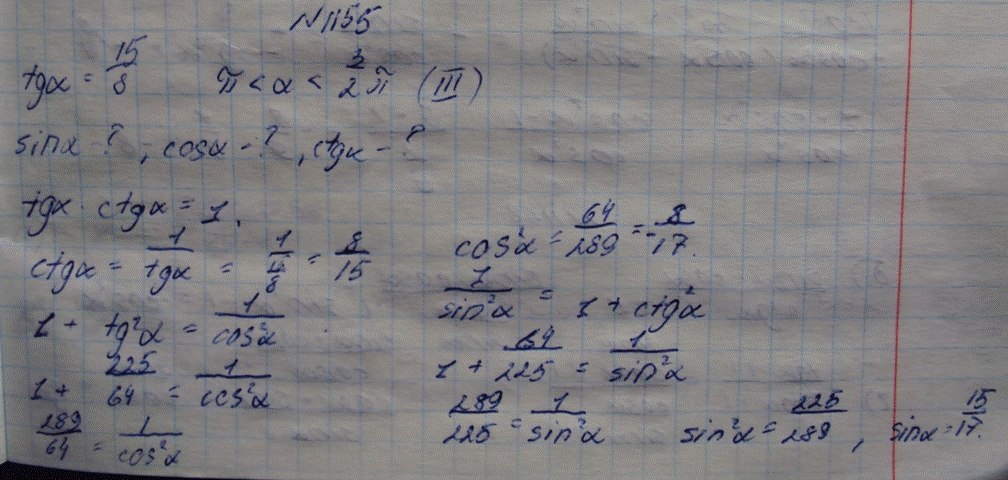 N 1155
tgα = 15/8 π < α < 3/2 π (III)
sinα - ?, cosα - ?, ctgα - ?
tgα · ctgα = 1.
ctgα = 1/tgα = 1/(15/8) = 8/15
1 + tg²α = 1/cos²α
1 + 225/64 = 1/cos²α
289/64 = 1/cos²α
cos²α = 64/289 = -8/17.
1/sin²α = 1 + ctg²α
1 + 64/225 = 1/sin²α
289/225 = 1/sin²α sin²α = 225/289, sinα = 15/17.